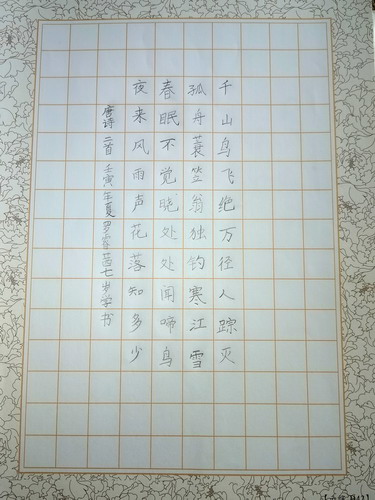 千山鸟飞绝万径人踪灭
孤舟蓑笠翁独钓寒江雪
春眠不觉晓处处闻啼鸟
夜来风雨声花落知多少
唐诗二首壬寅年夏罗睿茜七岁学书